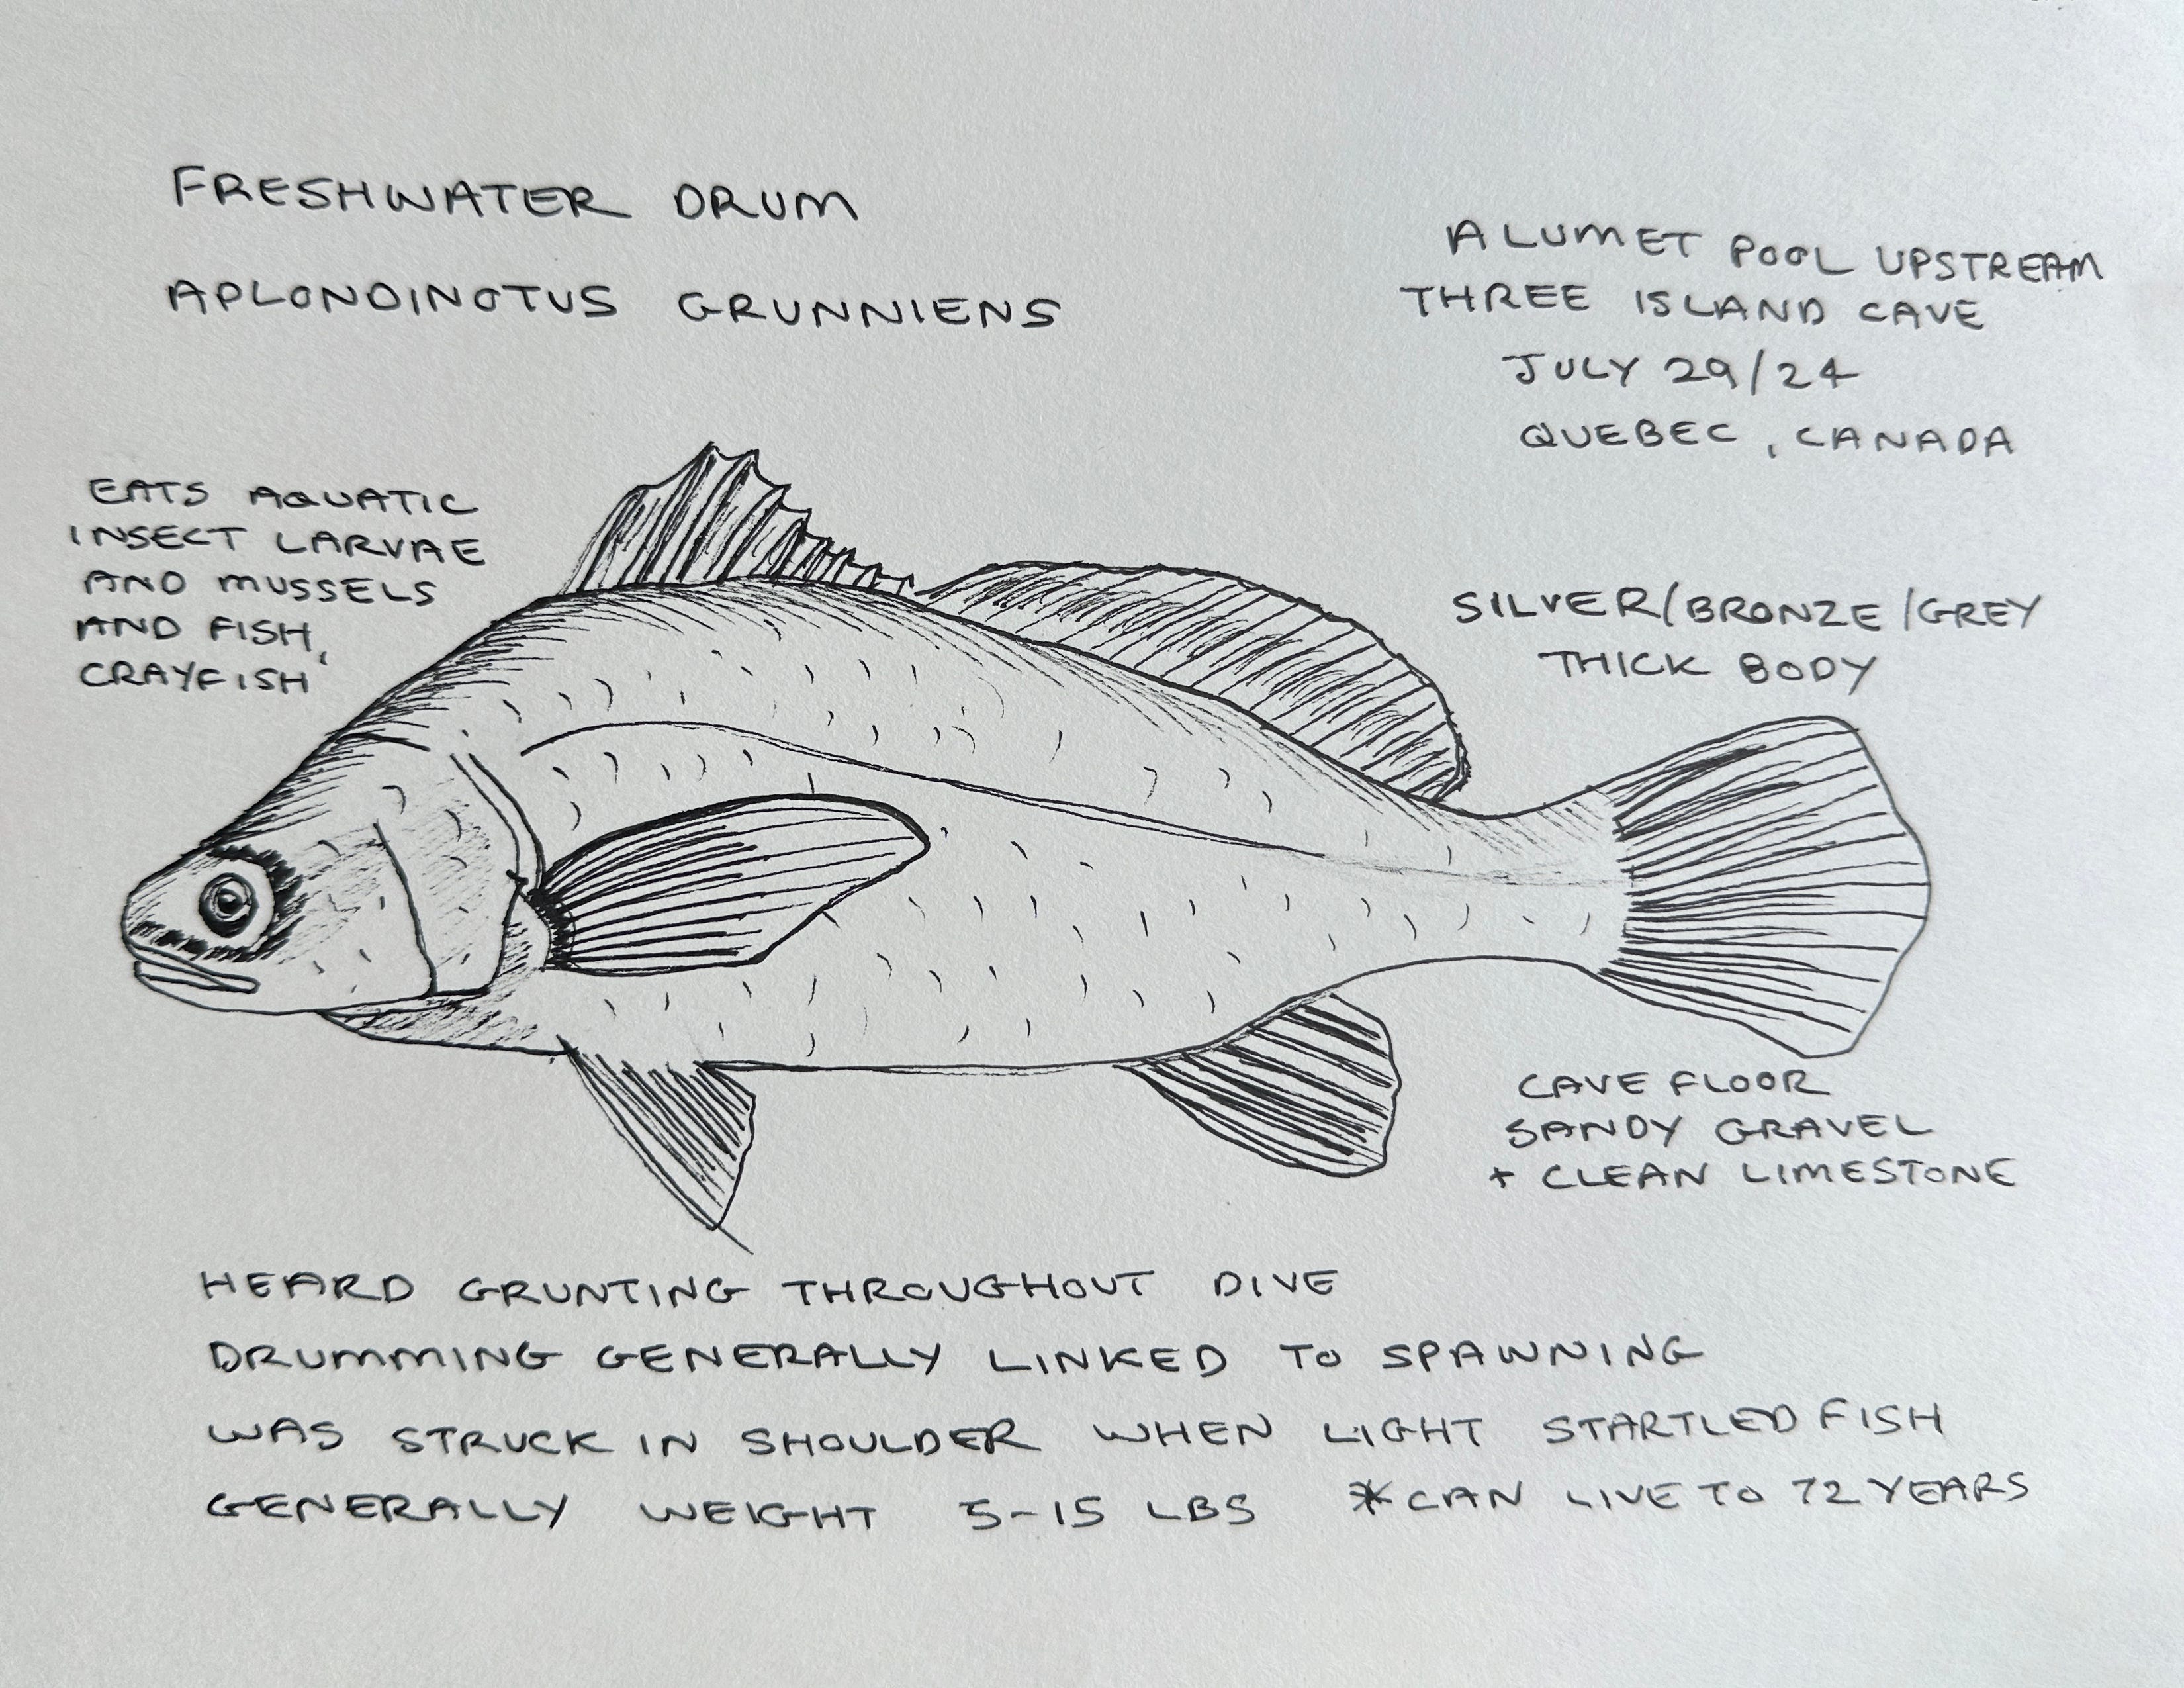 FRESHWATER DRUM
APLONDINOTUS GRUNNIENS
ALUMET POOL UPSTREAM
THREE ISLAND CAVE
JULY 29/24
QUEBEC, CANADA
EATS AQUATIC
INSECT LARVAE
AND MUSSELS
AND FISH,
CRAYFISH
SILVER/BRONZE/GREY
THICK BODY
CAVE FLOOR
SANDY GRAVEL
+ CLEAN LIMESTONE
HEARD GRUNTING THROUGHOUT DIVE
DRUMMING GENERALLY LINKED TO SPAWNING
WAS STRUCK IN SHOULDER WHEN LIGHT STARTLED FISH
GENERALLY WEIGHT 5-15 LBS *CAN LIVE TO 72 YEARS